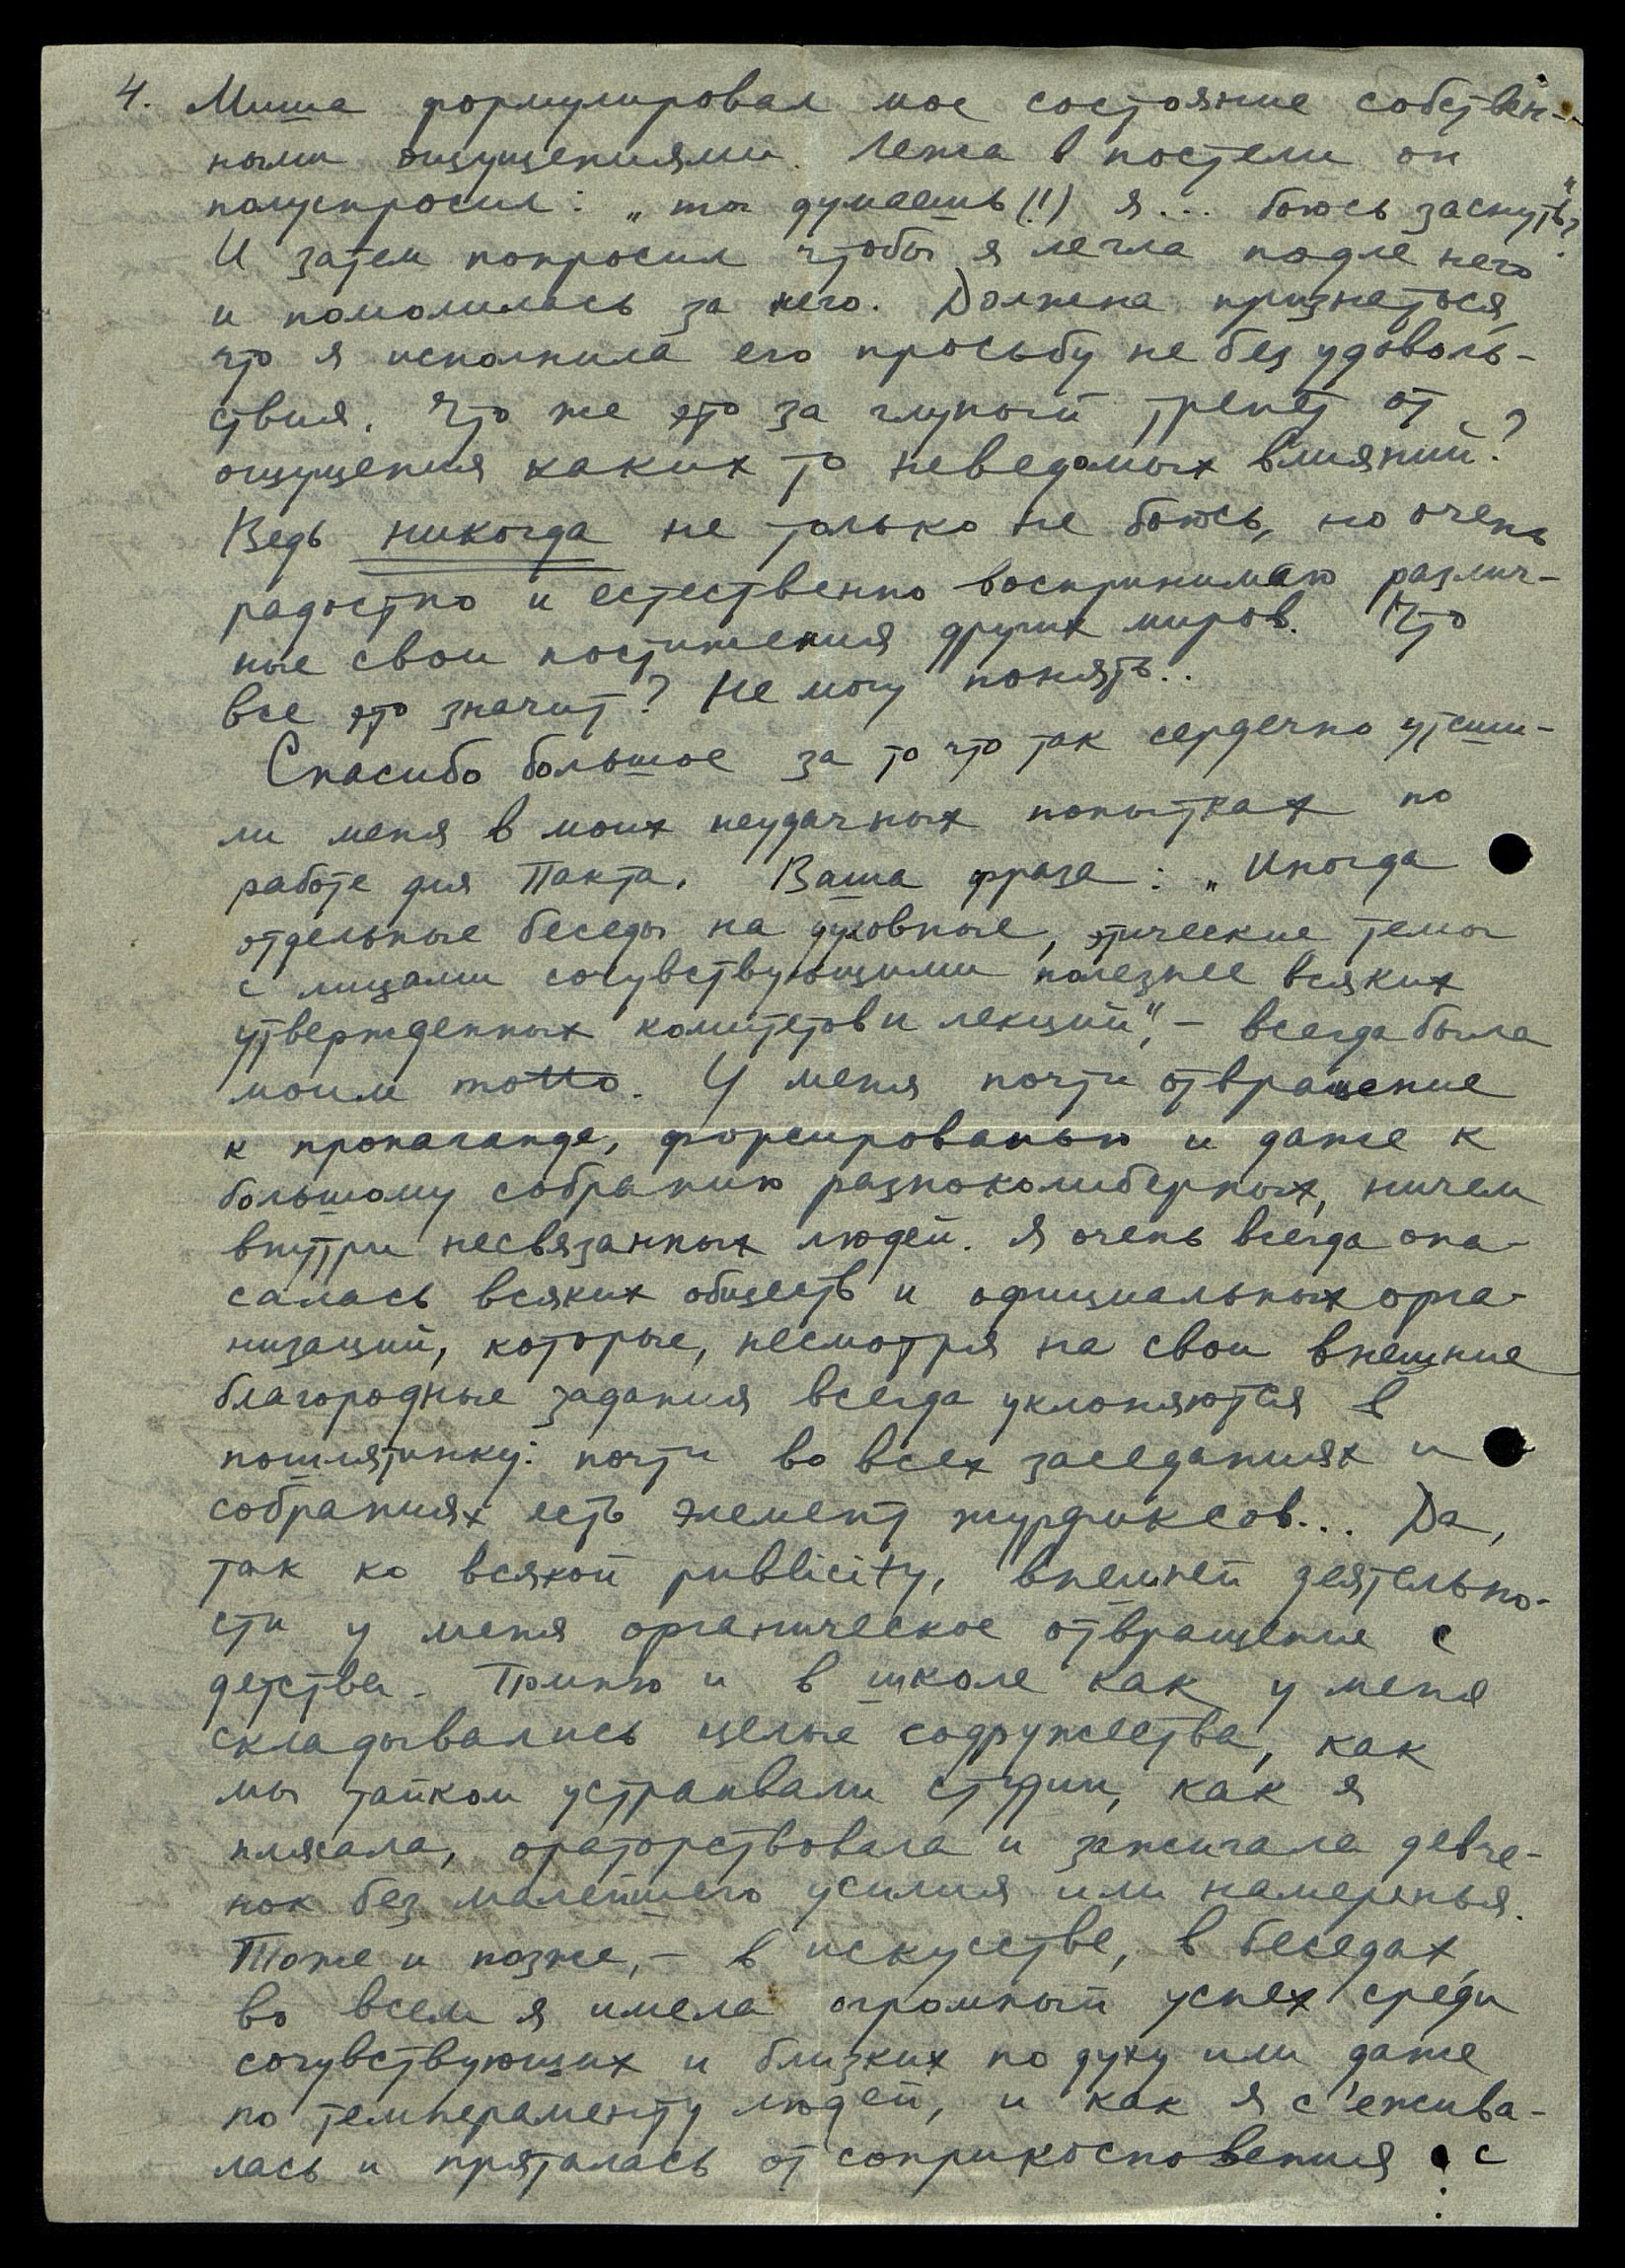 4. Миша формулировал мое состояние собствен-
ными ощущениями. Лежа в постели он
полуспросил: „ты думаешь (!!) я... боюсь заснуть"?
И затем попросил чтобы я легла подле него
и помолилась за него. Должна признаться,
что я исполнила его просьбу не без удоволь-
ствия. Что же это за глупый трепет от
ощущения каких то неведомых влияний?
Ведь никогда не только не боюсь, но очень
радостно и естественно воспринимаю различ-
ные свои постижения других миров. Что
все это значит? Не могу понять..
Спасибо большое за то что так сердечно утеши-
ли меня в моих неудачных попытках по
работе для Пакта. Ваша фраза: „Иногда
отдельные беседы на духовные, этические темы
с лицами сочувствующими полезнее всяких
утвержденных комитетов и лекций", – всегда была
моим motto. У меня почти отвращение
к пропаганде, форсированью и даже к
большому собранию разнокалиберных, ничем
внутри несвязанных людей. Я очень всегда опа-
салась всяких обществ и официальных орга-
низаций, которые, несмотря на свои внешние
благородные задания всегда уклоняются в
пошлятинку: почти во всех заседаниях и
собраниях есть элемент журфиксов... Да,
так ко всякой publicity, внешней деятельно-
сти у меня органическое отвращение с
детства. Помню и в школе как у меня
складывались целые содружества, как
мы тайком устраивали студии, как я
плясала, ораторствовала и зажигала девче-
нок без малейшего усилия или намеренья.
Тоже и позже, – в искусстве, в беседах,
во всем я имела огромный успех среди
сочувствующих и близких по духу или даже
по темпераменту людей, и как я с'ежива-
лась и пряталась от соприкосновения с